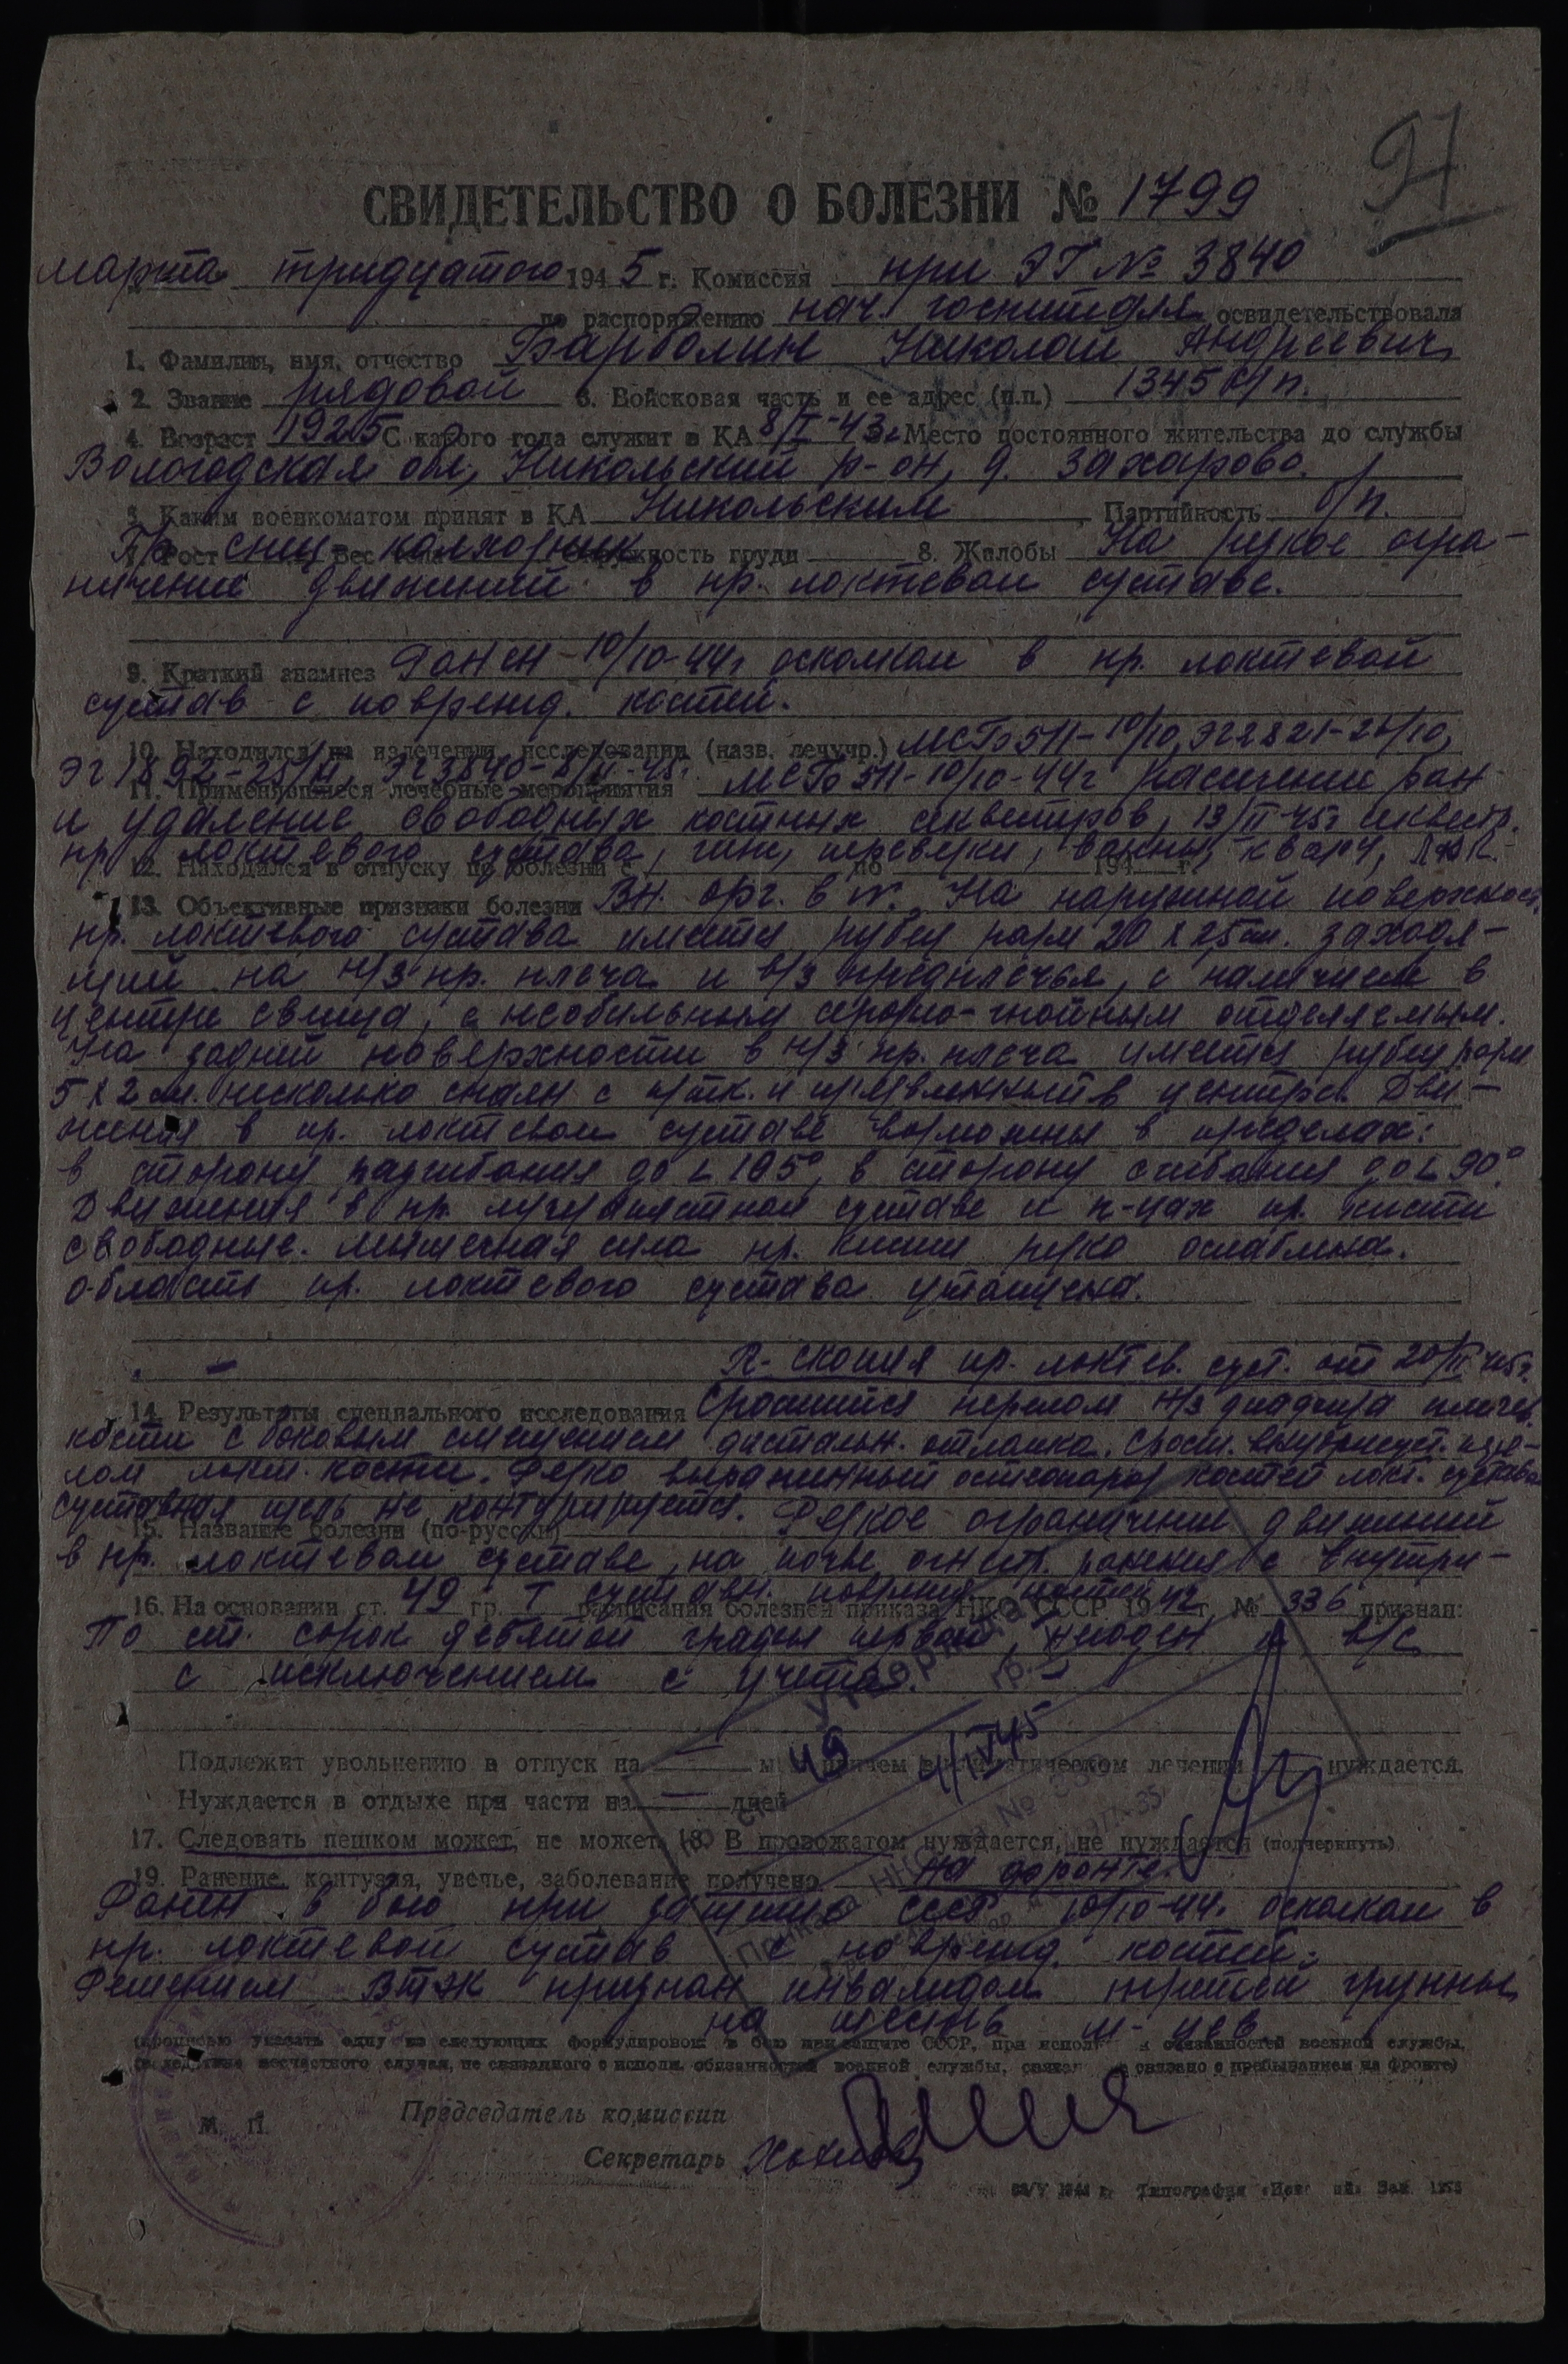 97
СВИДЕТЕЛЬСТВО О БОЛЕЗНИ № 1799
марта тридцатого 1945 г. Комиссия при ЭГ № 3840
по распоряжению нач. госпиталя освидетельствовала
1. Фамилия, имя, отчество Барболин Николай Андреевич
2. Звание рядовой 3. Войсковая часть и ее адрес (п.п.) 1345 с/п.
4. Возраст 1925 С какого года служит в КА 8/I-43г. Место постоянного жительства до службы
Вологодская обл., Никольский р-он, д. Захарово.
Каким военкоматом принят в КА Никольским, Партийность б/п.
7. Рост Вес тела окружность груди 8. Жалобы На резкое огра-
Гр. спец- колхозник
ничение движений в пр. локтевом суставе.
9. Краткий анамнез Ранен 10/10-44г осколком в пр. локтевой
сустав с поврежд. костей.
10. Находился на излечении, исследовании (назв. лечучр.) МСБ 511-10/10, ЭГ 2821-
ЭГ 1892- ЭГ 3840-
11. Применявшиеся лечебные мероприятия МСБ 511-10/10-44г рассечение ран
и удаление свободных костных секвестров, 13/II-45г
пр. локтевого сустава, гипс, перевязки, ванны, кварц, ЛФК.
12. Находился в отпуску по болезни с по 194 г.
13. Объективные признаки болезни Вн. орг. в N. На наружной поверхност.
пр. локтевого сустава имеется рубец разм 20 х 2,5 см. заходя-
щий на н/3 пр. плеча и в/3 предплечья, с наличием в
центре свища, с необильным серозно-гнойным отделяемым.
На задней поверхности в н/3 пр. плеча имеется рубец разм
5 х 2 см. несколько спаян с п/тк. и в центре. Дви-
жения в пр. локтевом суставе возможны в пределах:
в сторону разгибания до L 105°, в сторону сгибания до L 90°.
Движения в пр. лучезапястном суставе и п-цах пр. кисти
свободные. Мышечная сила пр. кисти резко ослаблена.
Область пр. локтевого сустава утолщена.
R-скопия пр. локтев. суст. от 20/III 45г.
14. Результаты специального исследования Сросшийся перелом н/3 диафиза плечев.
кости с боковым смещением дистальн. отломка. Сросш. внутрисуст. пере-
лом локт. кости. Резко выраженный остеопороз костей локт. сустава
суставная щель не контурируется.
15. Название болезни (по-русски) Резкое ограничение движений
в пр. локтевом суставе, на почве огнестр. ранения с внутри-
суставн. поврежд. костей
16. На основании ст. 49 гр. I расписания болезней приказа НКО СССР 1942 г. № 336 признан:
По ст. сорок девятой графы первой, негоден к в/с
с исключением с учета.
Подлежит увольнению в отпуск на — м причем в климатическом лечении нуждается.
Нуждается в отдыхе при части на — дней
49 4/IV 45
17. Следовать пешком может, не может. 18. В провожатом нуждается, не нуждается (подчеркнуть).
19. Ранение, контузия, увечье, заболевание получено на фронте.
Ранен в бою при защите СССР 10/10-44г. осколком в
пр. локтевой сустав с поврежд. костей.
Решением ВТЭК признан инвалидом третьей группы
на шесть м-цев
(прописью указать одну из следующих формулировок: в бою при защите СССР, при исполн обязанностей военной службы,
вследствие несчастного случая, не связанного с исполн. обязанностей военной службы, связано с пребыванием на фронте)
М. П.
Председатель комиссии
Секретарь